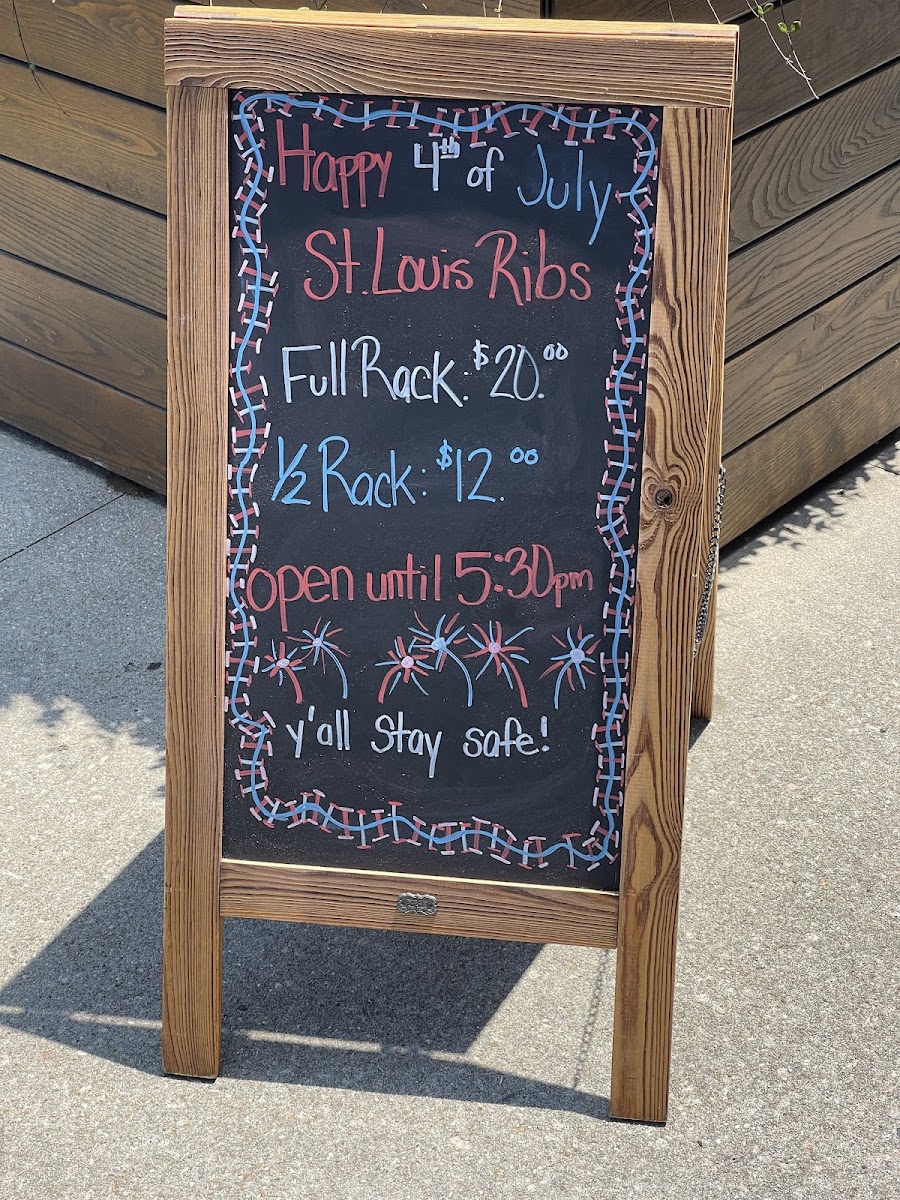 Happy 4th of July
St. Louis Ribs
Full Rack: $20.00
1/2 Rack: $12.00
open until 5:30pm
y'all stay safe!